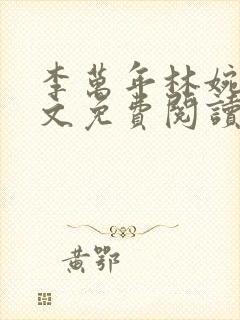 李萬年林婉
文免費閱讀
黃鄂